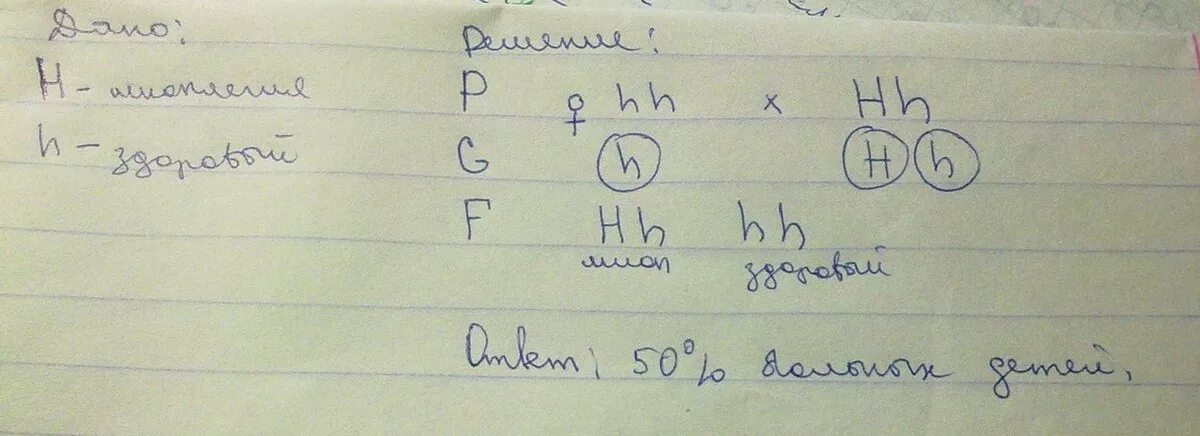 Дано:
Решение:
H - миоплегия
P ♀ hh x Hh
h - здоровый
G h H h
F Hh hh
миоп здоровый
Ответ: 50% больных детей.